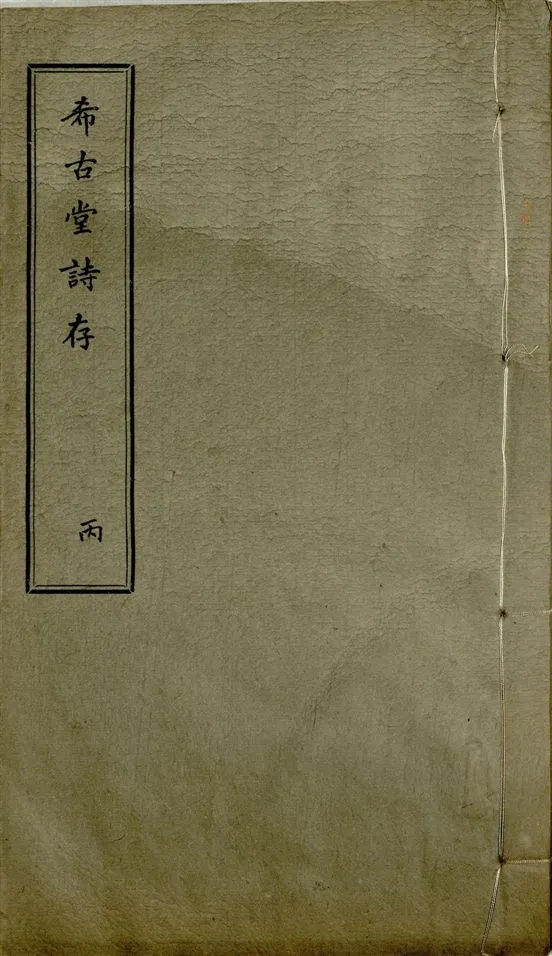 希古堂詩存
丙